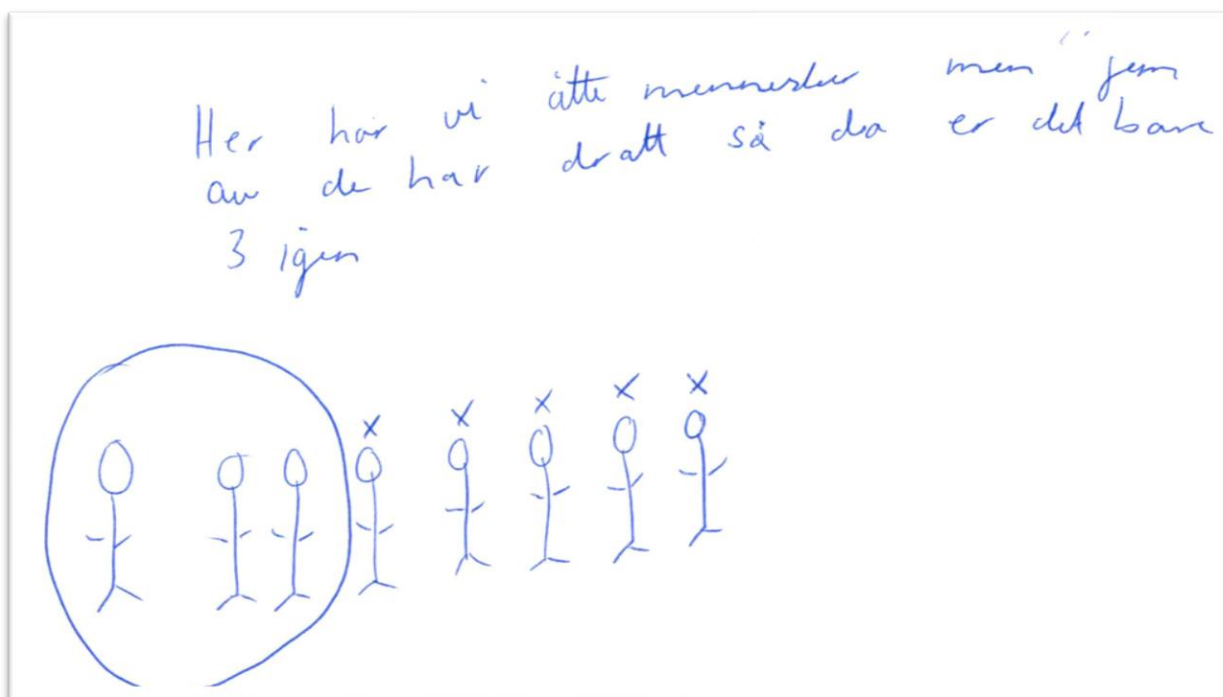 Her har vi åtte mennesker men fem
av de har dratt så da er det bare
3 igen